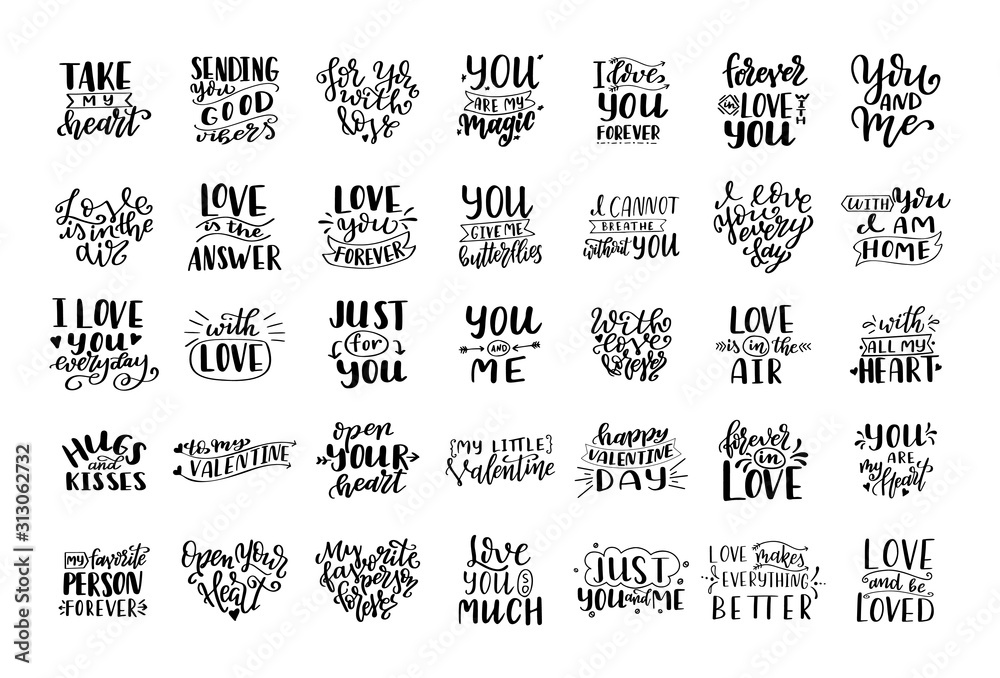 TAKE
MY
heart
SENDING
you
GOOD
vibers
For You
with
love
YOU
ARE MY
magic
I love
YOU
FOREVER
forever
in LOVE WITH
YOU
You
AND
Me
Love
is in the
air
LOVE
is the
ANSWER
LOVE
you
FOREVER
YOU
GIVE ME
butterflies
I CANNOT
BREATHE
without YOU
I love
You every
day
WITH You
I AM
HOME
I LOVE
YOU
everyday
with
LOVE
JUST
for
YOU
YOU
AND
ME
With
love
forever
LOVE
is in the
AIR
with
ALL MY
HEART
HUGS
and
KISSES
to my
VALENTINE
open
YOUR
heart
{MY LITTLE}
Valentine
happy
VALENTINE
DAY
forever
in
LOVE
YOU
ARE
my Heart
MY favorite
PERSON
FOREVER
Open Your
Heart
My
favourite
person
forever
Love
YOU SO
MUCH
JUST
YOU and ME
LOVE makes
EVERYTHING
BETTER
LOVE
and be
LOVED
Adobe Stock | #313062732